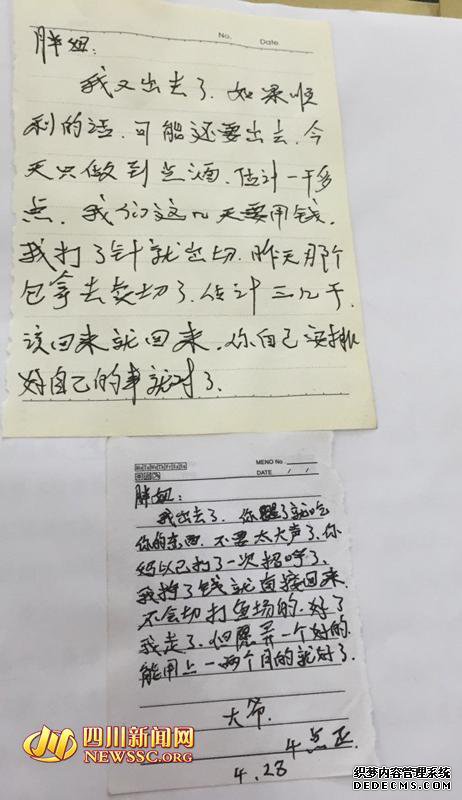 No. Date
胖妞:
我又出去了.如果顺
利的话.可能还要出去.今
天只做到点酒.估计一千多
点.我们这几天要用钱.
我打了针就出切.昨天那个
包拿去卖切了.估计三几千.
该回来就回来.你自己安排
好自己的事就对了.
Mo Tu We Th Fr Sa Su
MEMO No.
DATE / /
胖妞:
我出去了.你醒了就吃
你的东西.不要太大声了.你
妈已打了一次招呼了.
我拧了钱就直接回来
不会切打鱼场的.好了
我走了.但愿弄一个好的.
能用上一两个月的就对了.
大爷.
4点正.
4.23
四川新闻网
NEWSSC.ORG
织梦内容管理系统
DEDECMS.COM